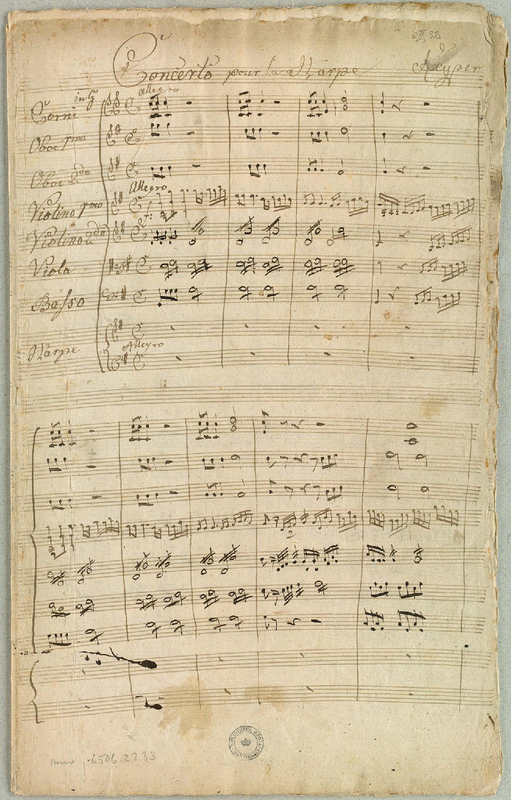 Concerto pour la Harpe Keyper
Corni in G Allegro
Oboe Pmo
Oboe 2do
Allegro
Violino Pmo
Violino 2do
Viola
Basso
Harpe Allegro
6506.2233